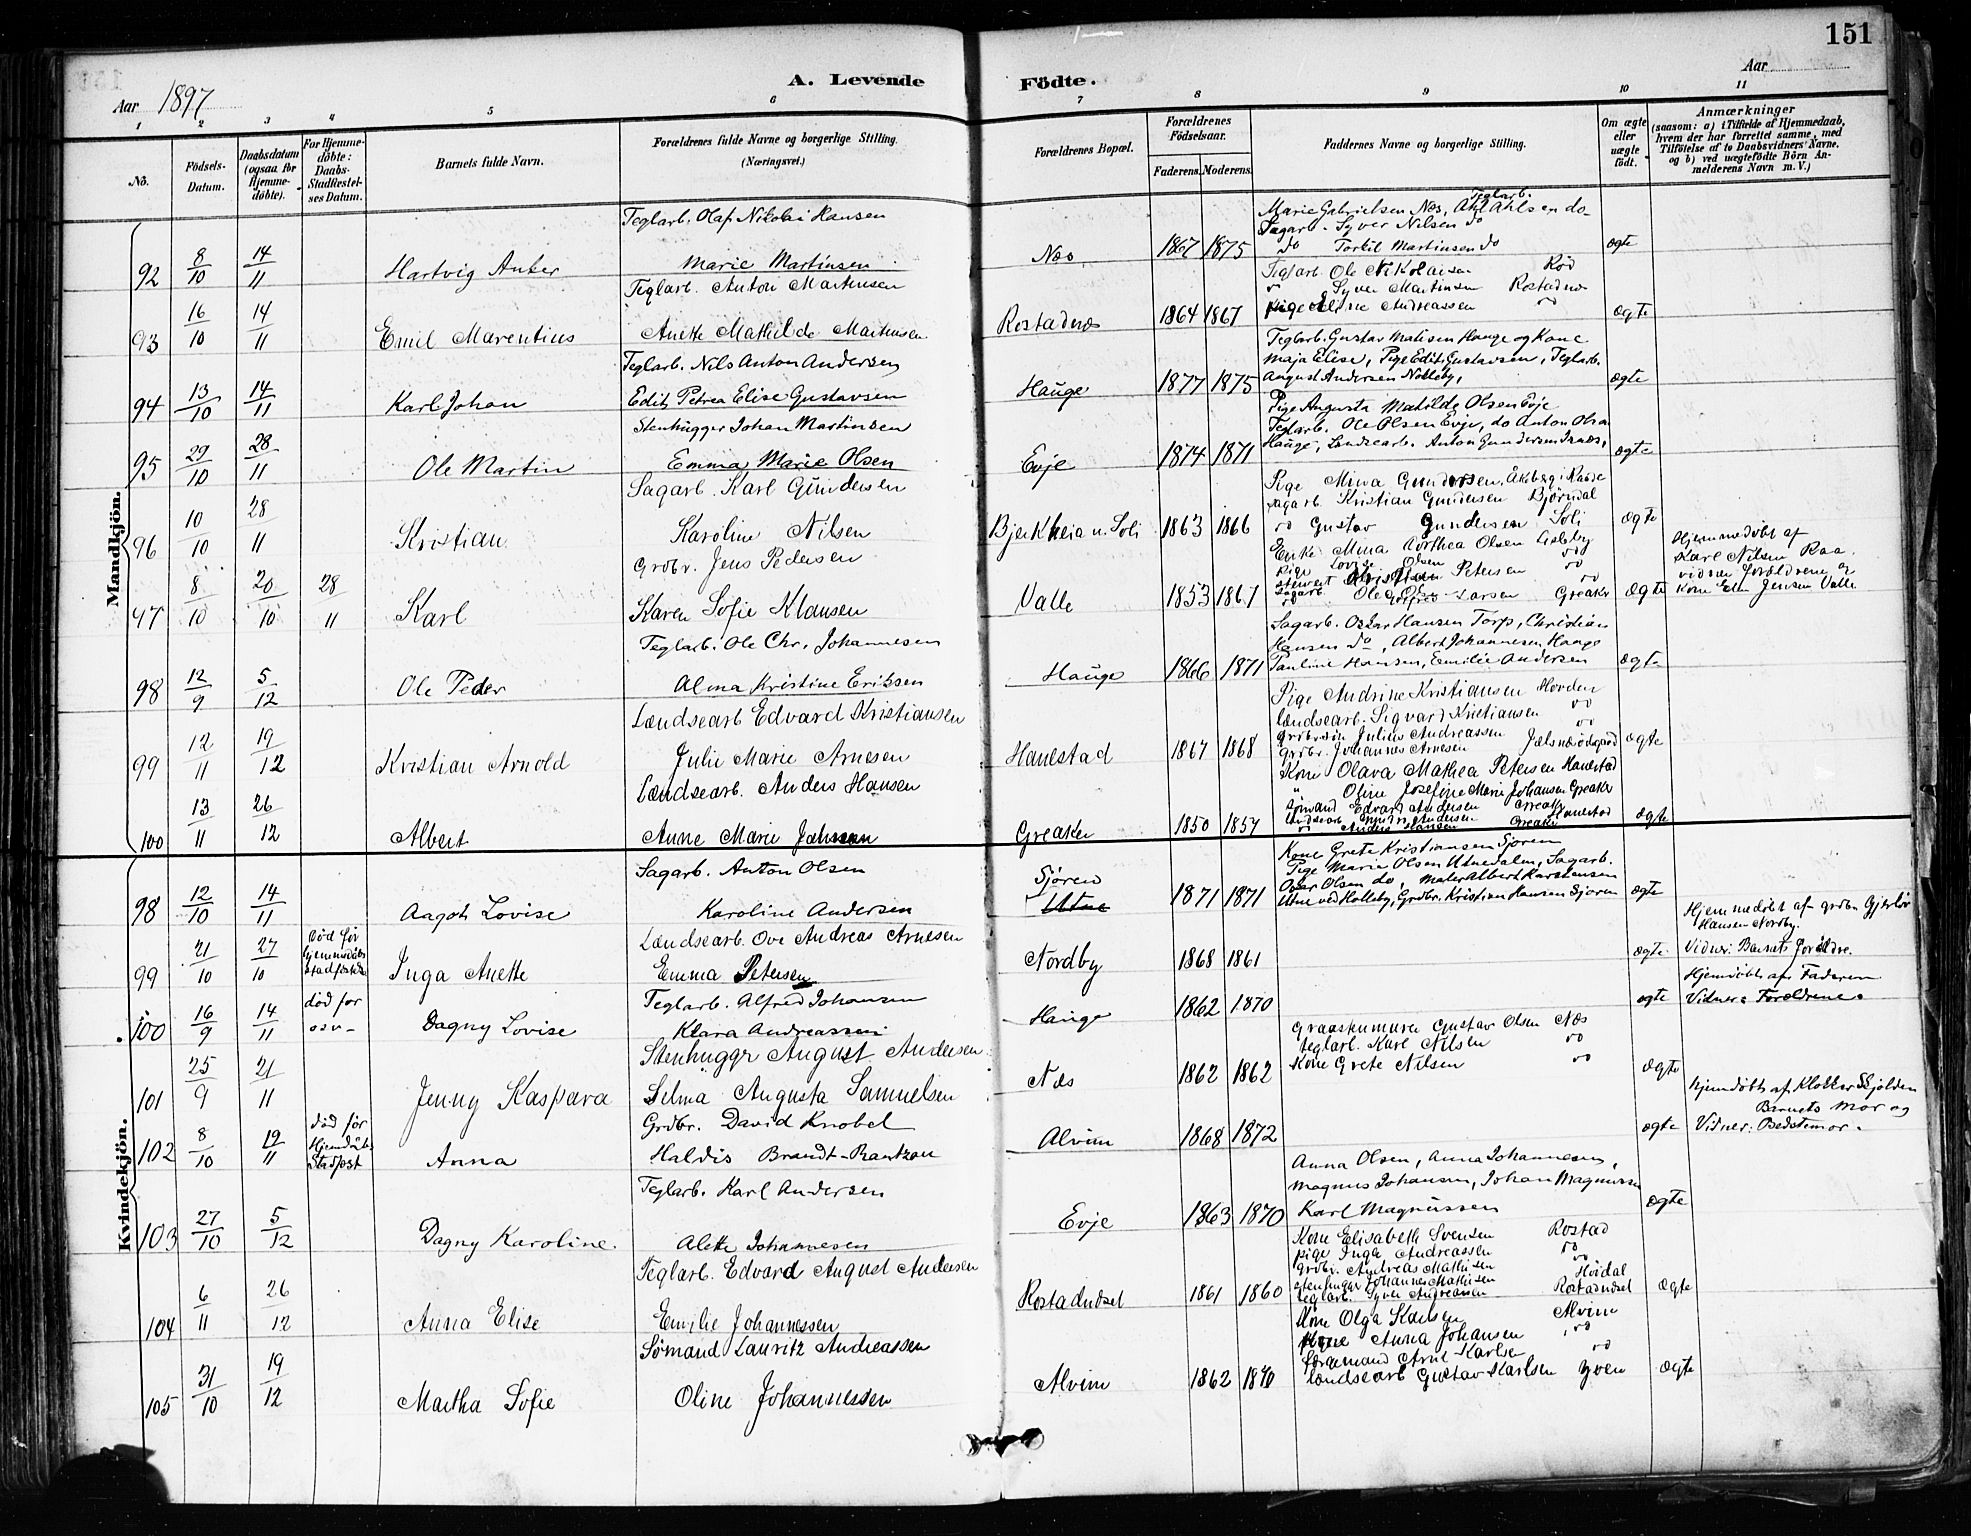 151
A. Levende Födte.
Aar 1897
Aar
1 2 3 4 5 6 7 8 9 10 11
No.
Födsels-Datum.
Daabsdatum (ogsaa for Hjemme-döbte).
For Hjemme-döbte: Daabs-Stadfæstel-ses Datum.
Barnets fulde Navn.
Forældrenes fulde Navne og borgerlige Stilling. (Næringsvei.)
Forældrenes Bopæl.
Forældrenes Födselsaar.
Faderens. Moderens.
Faddernes Navne og borgerlige Stilling.
Om ægte eller uægte födt.
Anmærkninger
(saasom: a) i Tilfælde af Hjemmedaab, hvem der har forrettet samme, med Tilföielse af to Daabsvidners Navne. og b) ved uægtefödte Börn An-melderens Navn m. V.)
Mandkjön.
92 8/10 14/11 Hartvig Anker
Teglarb. Olaf Nikolai Hansen
Marie Martinsen
Næs 1867 1875
Marie Gabrielsen Næs, Teglarb. Ahl Ahlsen do
Sagarb. Syver Nilsen do
do Torkil Martinsen do
ægte
93 16/10 14/11 Emil Marentius
Teglarb. Anton Martinsen
Anette Mathilde Martinsen
Rostadnæs 1864 1867
Teglarb. Ole Nikolaisen Röd
do Syver Martinsen Rostadnæs
Pige Eline Andreassen do
ægte
94 13/10 14/11 Karl Johan
Teglarb. Nils Anton Andersen
Edit Petrea Elise Gustavsen
Hauge 1877 1875
Teglarb. Gustav Matisen Hauge og Kone
Maja Elise, Pige Edit Gustavsen, Teglarb.
August Andersen Nolleby,
ægte
95 29/10 28/11 Ole Martin
Stenhugger Johan Martinsen
Emma Marie Olsen
Evje 1874 1871
Pige Augusta Mathilde Olsen Evje
Teglarb. Ole Olsen Evje, do Anton Olsen
Hauge, Landsearb. Anton Gundersen
ægte
96 10/10 28/11 Kristian
Sagarb. Karl Gundersen
Karoline Nilsen
Bjerkheia u. Soli 1863 1866
Pige Mina Gundersen, Akeberg i Raade
Sagarb Kristian Gundersen Björndal
do Gustav Gundersen Soli
ægte
97 8/10 20/10 28/11 Karl
Grdbr. Jens Pedersen
Karen Sofie Klausen
Valle 1853 1867
Enke Mina Dorthea Olsen
Pige Lovise Olsen do
Stewert Petersen do
Sagarb. Larsen Greaker
ægte
Hjemmedöbt af
Karl Nilsen Raa.
vidner forældrene og
Kone Ellen Jensen Valle
98 12/9 5/12 Ole Peder
Teglarb. Ole Chr. Johannesen
Alma Kristine Eriksen
Hauge 1866 1871
Sagarb. Oskar Hansen Torp, Christian
Hansen do, Albert Johannesen Hauge
Pauline Hansen, Emilie Andersen
ægte
99 12/11 19/12 Kristian Arnold
Lændsearb Edvard Kristiansen
Julie Marie Arnesen
Hanestad 1867 1868
Pige Andrine Kristiansen Horden
Lændsearb. Sigvard Kristiansen do
Julius Andreassen do
Grdbr. Johannes Arnesen
ægte
100 13/11 26/12 Albert
Lændsearb. Anders Hansen
Anne Marie Jahnsen
Greaker 1850 1857
Kone Olava Mathea Petersen Hanestad
" Oline Josefine Marie Johansen Greaker
Sömand Edvard Andersen Greaker
Andersen Hanestad
do Anders Hansen Greaker
ægte
Kvindekjön.
98 12/10 14/11 Aagot Lovise
Sagarb. Anton Olsen
Karoline Andersen
Sjören
Utne
1871 1871
Kone Grete Kristiansen Sjoren
Pige Marie Olsen Utnedalen, Sagarb.
Oskar Olsen do, Maler Albert Karstensen
Utne ved Kolleby, Grdbr. Kristian Hansen Sjoren
ægte
99 21/10 27/10 Död för hjemmedöbs stadfæstelse
Inga Anette
Lændsearb. Ove Andreas Arnesen
Emma Petersen
Nordby 1868 1861
ægte
Hjemmedöbt af grdbr. Gjerlöv
Hansen Nordby.
Vidner: Barnets forældre.
100 16/9 14/11 död for osv-
Dagny Lovise
Teglarb. Alfred Johansen
Klara Andreassen
Hauge 1862 1870
ægte
Hjemdöbt af Faderen
Vidner: Forældrene.
101 25/9 21/11 Jenny Kaspara
Stenhuggr August Andersen
Selma Augusta Samuelsen
Næs 1862 1862
Gustav Olsen Næs
Teglarb. Karl Nilsen do
Kone Grete Nilsen do
ægte
102 8/10 19/11 död for Hjemdöbs Stadfæst
Anna
Grdbr. David Knobel
Haldis Brandt-Rantzau
Alvim 1868 1872
ægte
Hjemdöbt af Klokker Skjolden
Barnets Mor og
Vidner: Bedstemor.
103 27/10 5/12 Dagny Karoline.
Teglarb. Karl Andersen
Alette Johannesen
Evje 1863 1870
Anna Olsen, Anna Johannesen,
Magnus Johansen, Johan Magnussen
Karl Magnussen
ægte
104 6/11 26/12 Anna Elise
Teglarb. Edvard August Andersen
Emilie Johannessen
Rostadødset 1861 1860
Kone Elisabeth Svensen Rostad
Pige Inga Andreassen do
Grdbr. Andreas Mathisen do
Stenhuggr Johannes Mathisen Höidal
Teglarb. Syver Andreassen Rostadødset
ægte
105 31/10 19/12 Martha Sofie
Sömand Lauritz Andreassen
Oline Johannessen
Alvim 1862 1870
Kone Olga Karlsen Alvim
Anna Johansen do
Sömand Arnt Karlsen do
Lændsearb Gustav Karlsen Yven
ægte